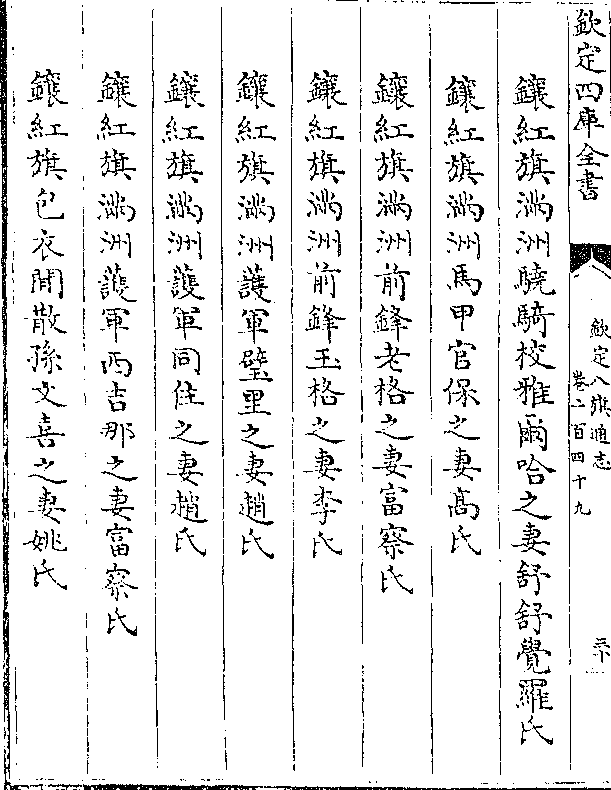 欽定四庫全書
欽定八旗通志
卷二百四十九
三十
鑲紅旗滿洲驍騎校雅爾哈之妻舒舒覺羅氏
鑲紅旗滿洲馬甲官保之妻高氏
鑲紅旗滿洲前鋒老格之妻富察氏
鑲紅旗滿洲前鋒玉格之妻李氏
鑲紅旗滿洲護軍璧里之妻趙氏
鑲紅旗滿洲護軍同住之妻趙氏
鑲紅旗滿洲護軍西吉那之妻富察氏
鑲紅旗包衣閒散孫文喜之妻姚氏